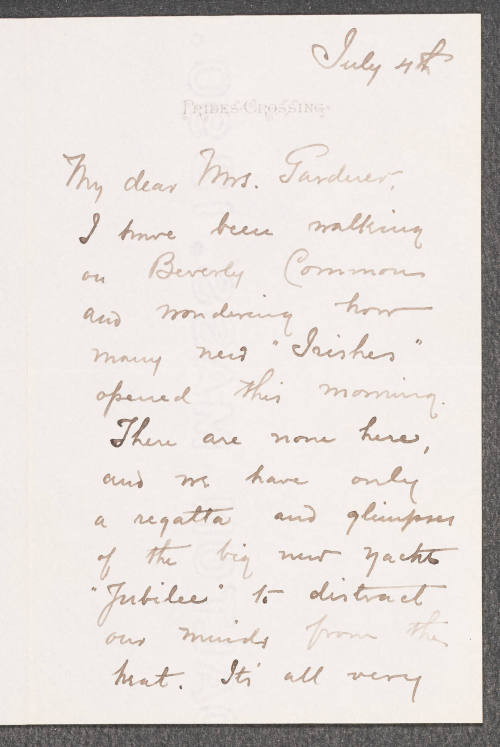 July 4th
PRIDES CROSSING
My dear Mrs. Gardner,
I have been walking
on Beverly Commons
and wondering how
many new "Irishes"
opened this morning.
There are none here,
and we have only
a regatta and glimpses
of the big new yacht
"Jubilee" to distract
our minds from the
heat. It's all very